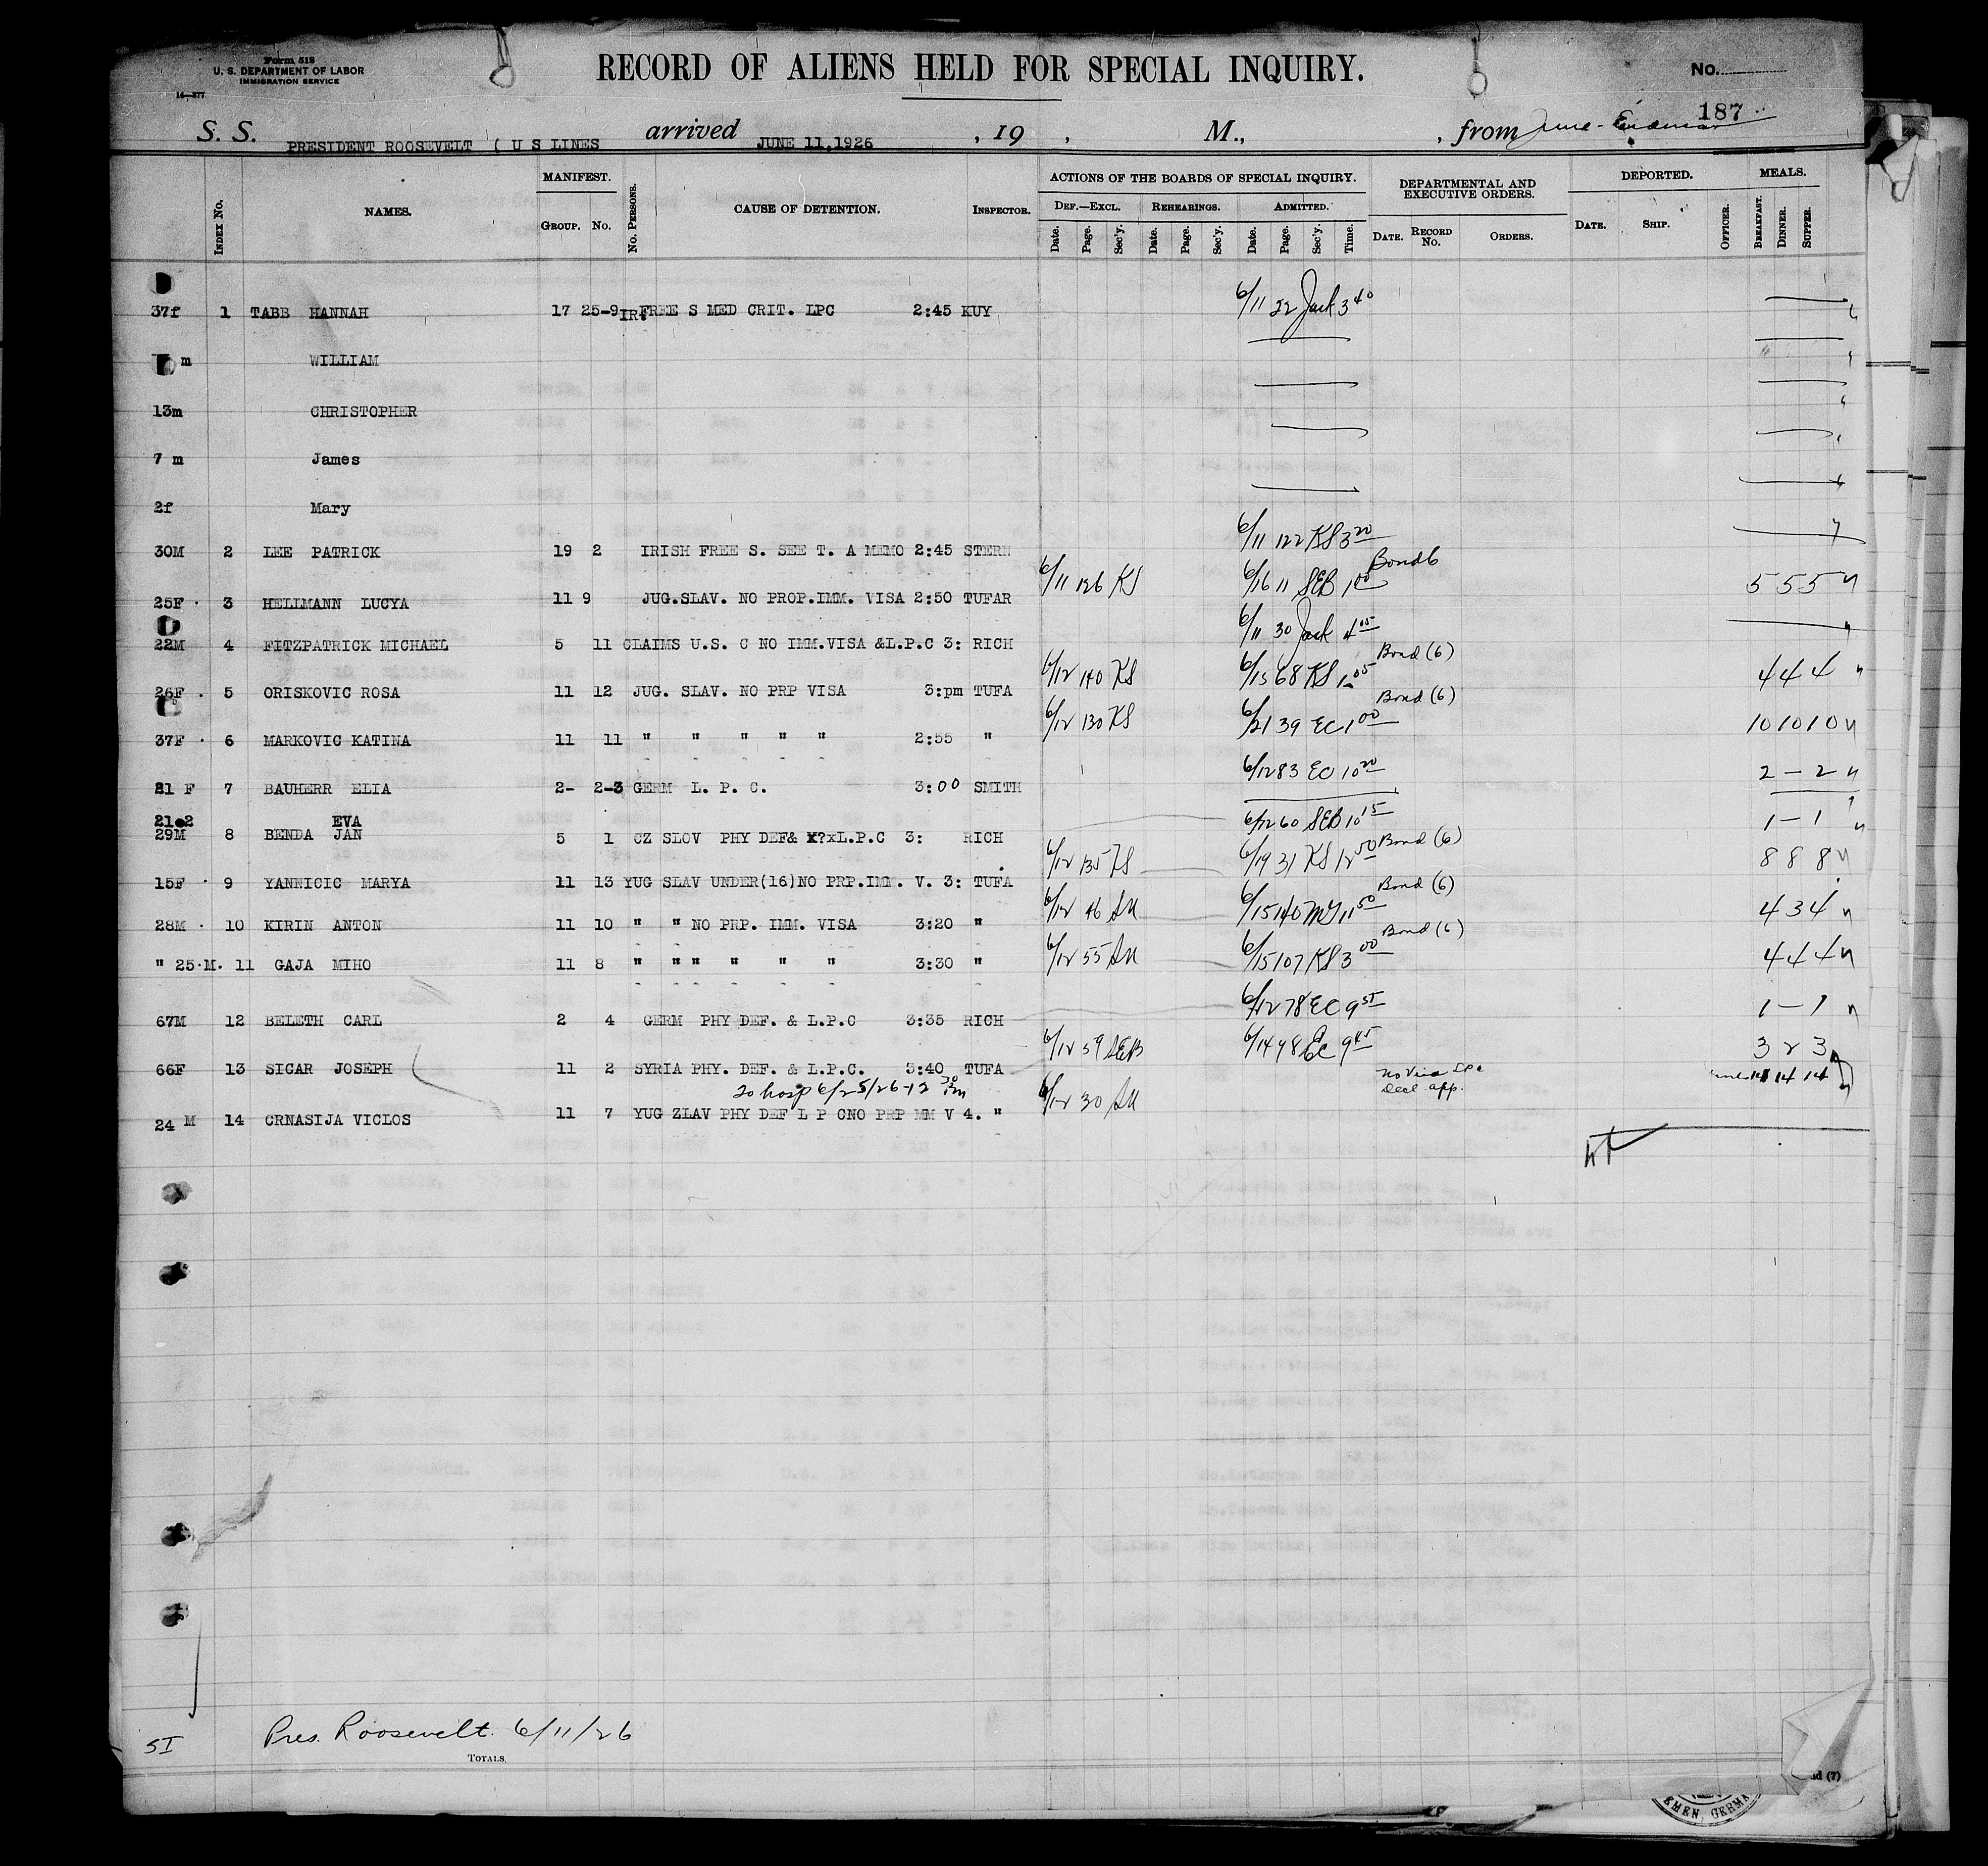 Form 518
U. S. DEPARTMENT OF LABOR
IMMIGRATION SERVICE
14—377
RECORD OF ALIENS HELD FOR SPECIAL INQUIRY.
No.
187
S. S. PRESIDENT ROOSEVELT ( U S LINES arrived JUNE 11,1926 , 19 , M., , from
INDEX No. NAMES. MANIFEST. GROUP. No. No. PERSONS. CAUSE OF DETENTION. INSPECTOR. ACTIONS OF THE BOARDS OF SPECIAL INQUIRY. DEF.—EXCL. Date. Page. Sec'y. REHEARINGS. Date. Page. Sec'y. ADMITTED. Date. Page. Sec'y. Time. DEPARTMENTAL AND EXECUTIVE ORDERS. DATE. RECORD No. ORDERS. DEPORTED. DATE. SHIP. OFFICER. MEALS. BREAKFAST. DINNER. SUPPER.
37f 1 TABB HANNAH 17 25-9 IR.FREE S MED CRIT. LPC 2:45 KUY 6/11 22 Jack 3 40
m WILLIAM
13m CHRISTOPHER
7 m James
2f Mary
30M 2 LEE PATRICK 19 2 IRISH FREE S. SEE T. A MEMO 2:45 STERN 6/11 122 KS 3 20
25F 3 HELLMANN LUCYA 11 9 JUG.SLAV. NO PROP.IMM. VISA 2:50 TUFAR 6/11 126 KS 6/16 11 SEB 1 00 Bond 6 5 5 5
22M 4 FITZPATRICK MICHAEL 5 11 CLAIMS U.S. C NO IMM.VISA &L.P.C 3: RICH 6/11 30 Jack 4 05
26F 5 ORISKOVIC ROSA 11 12 JUG. SLAV. NO PRP VISA 3:pm TUFA 6/12 140 KS 6/15 68 KS 1 05 Bond (6) 4 4 4
37F 6 MARKOVIC KATINA 11 11 " " " " " 2:55 " 6/12 130 KS 6/21 39 EC 1 00 Bond (6) 10 10 10
21 F 7 BAUHERR ELIA 2- 2-3 GERM L. P. C. 3:00 SMITH 6/12 83 EC 10 20 2 – 2
EVA
29M 8 BENDA JAN 5 1 CZ SLOV PHY DEF& X?xL.P.C 3: RICH 6/12 60 SEB 10 15 1 – 1
15F 9 YANNICIC MARYA 11 13 YUG SLAV UNDER(16)NO PRP.IMM. V. 3: TUFA 6/12 135 KS 6/19 31 KS 12 50 Bond (6) 8 8 8
28M 10 KIRIN ANTON 11 10 " " NO PRP. IMM. VISA 3:20 " 6/12 46 6/15 140 11 50 Bond (6) 4 3 4
" 25 M. 11 GAJA MIHO 11 8 " " " " " " 3:30 " 6/12 55 6/15 107 KS 3 00 Bond (6) 4 4 4
67M 12 BELETH CARL 2 4 GERM PHY DEF. & L.P.C 3:35 RICH 6/12 78 EC 9 55 1 – 1
66F 13 SICAR JOSEPH 11 2 SYRIA PHY. DEF. & L.P.C. 3:40 TUFA 6/12 59 SEB 6/14 98 EC 9 45 3 2 3
To hosp 6/25/26-12 30 Pm
No Visa LPC
24 M 14 CRNASIJA VICLOS 11 7 YUG ZLAV PHY DEF L P CNO PRP MM V 4. " 6/12 30 app. 14 14 14
SI Pres. Roosevelt. 6/11/26
TOTALS,
(7)
EMEN, GERMA